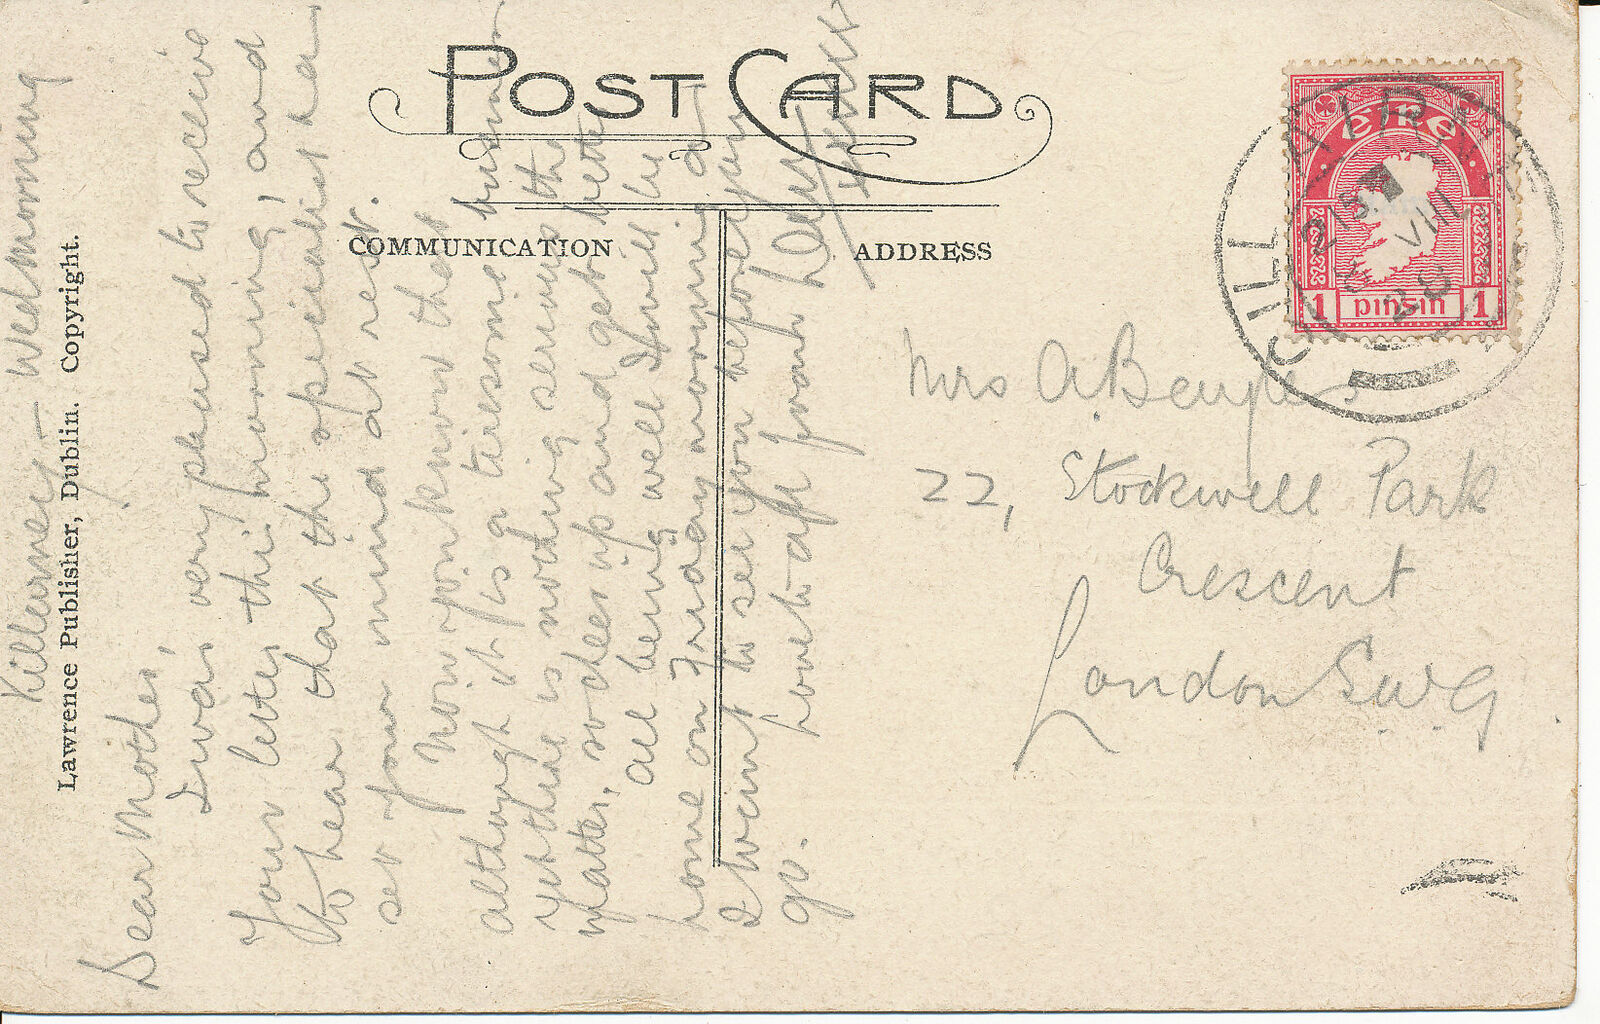 POST CARD
COMMUNICATION
ADDRESS
Lawrence Publisher, Dublin. Copyright.
Killarney - Wed morning
Dear Mother,
I was very pleased to receive
your letter this morning, and
to hear that the specialist has
set your mind at rest.
Now you know that
although it is a tiresome business
yet there is nothing serious the
matter, so cheer up and get better
All being well I will be
home on Friday morning as
I want to see you before you
go. Love to all from
Mrs A.
22, Stockwell Park
Crescent
London S.W.9
éire
1 pinsin 1
CILL AIRNE